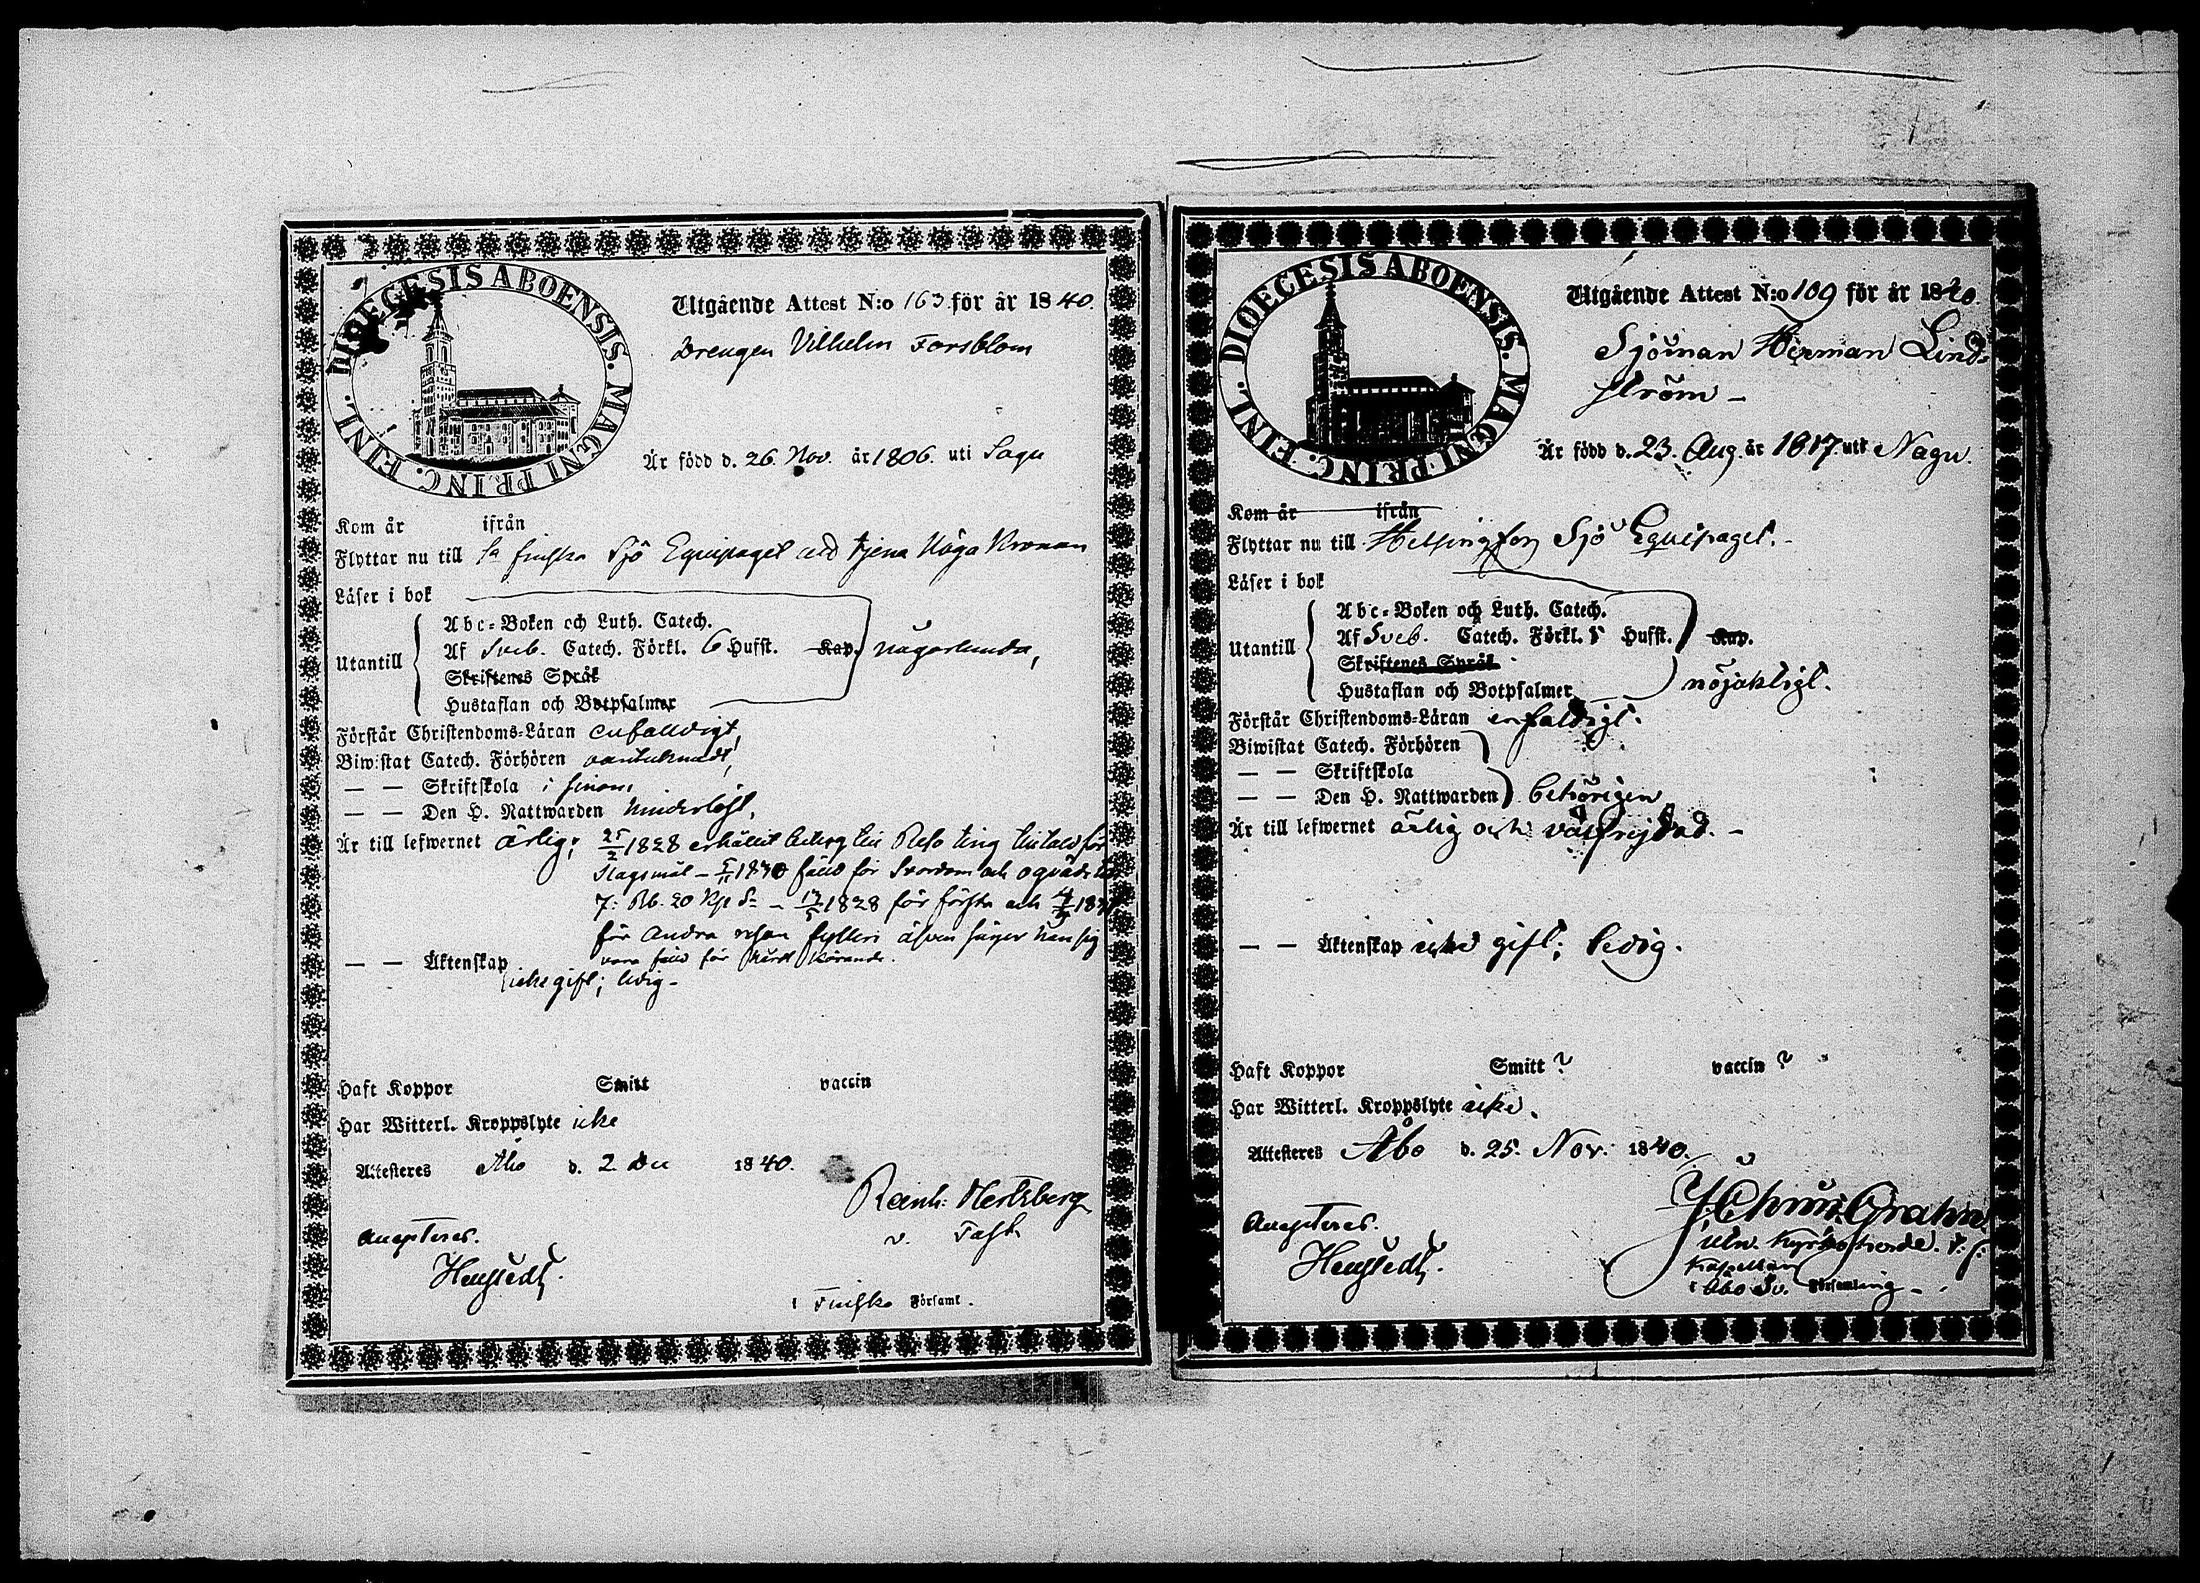 DIOECESIS ABOENSIS. MAGNI PRINC. FINL.
Utgående Attest N:o 163 för år 1840.
Drengen Vilhelm Forsblom
Är född d. 26. Nov. år 1806. uti Sagu
Kom år ifrån
Flyttar nu till 1a finska Sjö Equipaget att tjena Höga Kronan
Läser i bok
Utantill
Abc-Boken och Luth. Catech.
Af Sveb. Catech. Förkl. 6 Hufst. Kap. någorlunda,
Skriftenes Språk
Hustaflan och Botpsalmer
Förstår Christendoms-Läran enfaldigt,
Biwistat Catech. Förhören
— — Skriftskola
— — Den H. Nattwarden hinderlöst,
Är till lefwernet ärlig; 25/2 1828 erhållit
Slagsmål – 1840 fälld för Svordom och oqväds
7: Rb. 20 Kop Sr – 1828 för första och
för andra resan fylleri äfven säger han sig
vara fälld för hårdt körande.
— — Äktenskap icke gift; ledig –
Haft Koppor Smitt vaccin
Har Witterl. Kroppslyte icke
Attesteres Åbo d. 2 Dec 1840.
Reinh: Hertzberg
v. Past.
Accepteras.
i Finska Församl.
DIOECESIS ABOENSIS. MAGNI PRINC. FINL.
Utgående Attest N:o 109 för år 1840.
Sjöman Herman Lind-
ström –
Är född d. 23. Aug. år 1817. uti Nagu.
Kom år ifrån
Flyttar nu till Helsingfors Sjö Equipaget. –
Läser i bok
Utantill
Abc-Boken och Luth. Catech.
Af Sveb. Catech. Förkl. 5 Hufst. Kap.
Skriftenes Språk
Hustaflan och Botpsalmer nöjaktigt.
Förstår Christendoms-Läran enfaldigt.
Biwistat Catech. Förhören
— — Skriftskola
— — Den H. Nattwarden behörigen
Är till lefwernet ärlig och välfrejdad. –
— — Äktenskap icke gift; ledig.
Haft Koppor Smitt ? vaccin ?
Har Witterl. Kroppslyte icke.
Attesteres Åbo d. 25. Nov. 1840.
Grahn
Accepteras.
Kyrkoherde.
Kapellan
i Åbo Sv. Församling –